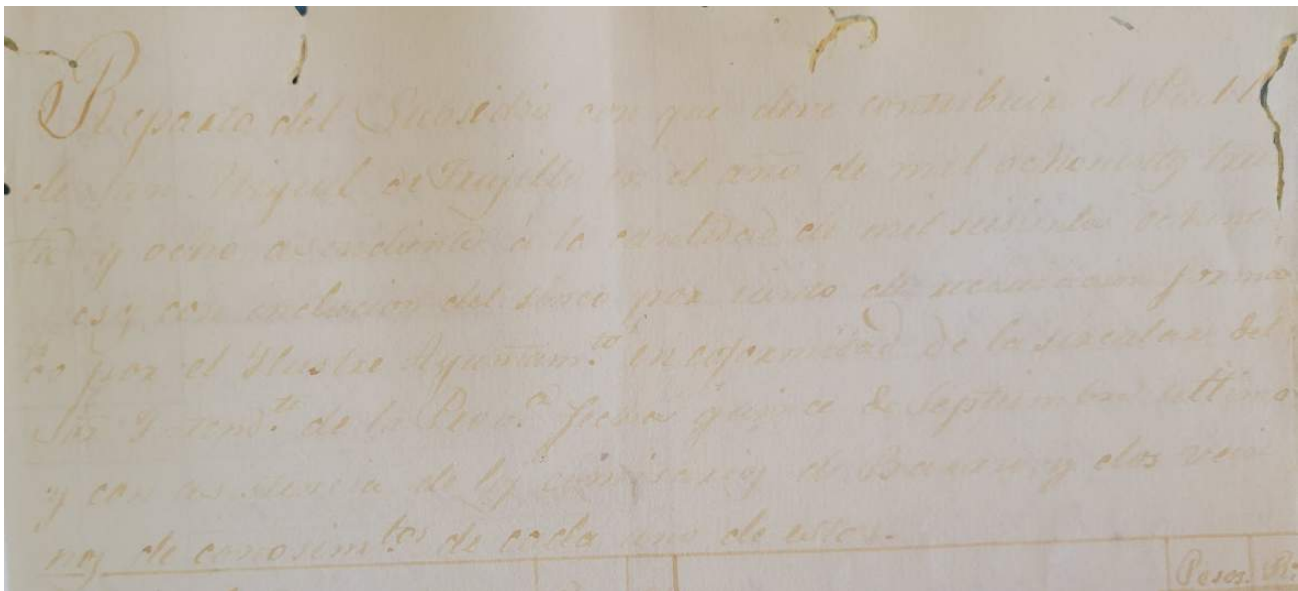 Reparto del Subsidio con que deve contribuir el Puebl
de San Miguel de Trugillo en el año de mil ochocientos trei
ta y ocho asendiente á la cantidad de mil seisientos
con inclucion del sinco por ciento de recaudacion forma
do por el Ilustre Ayuntam.to en conformidad de la sircular del
Sor. Yntend.te de la Prov.a fecha quince de Septiembre ultimo
y con asistencia de los comisarios de Barrios y dos veci
nos de conosim.tos de cada uno de estos.
Pesos. Rs